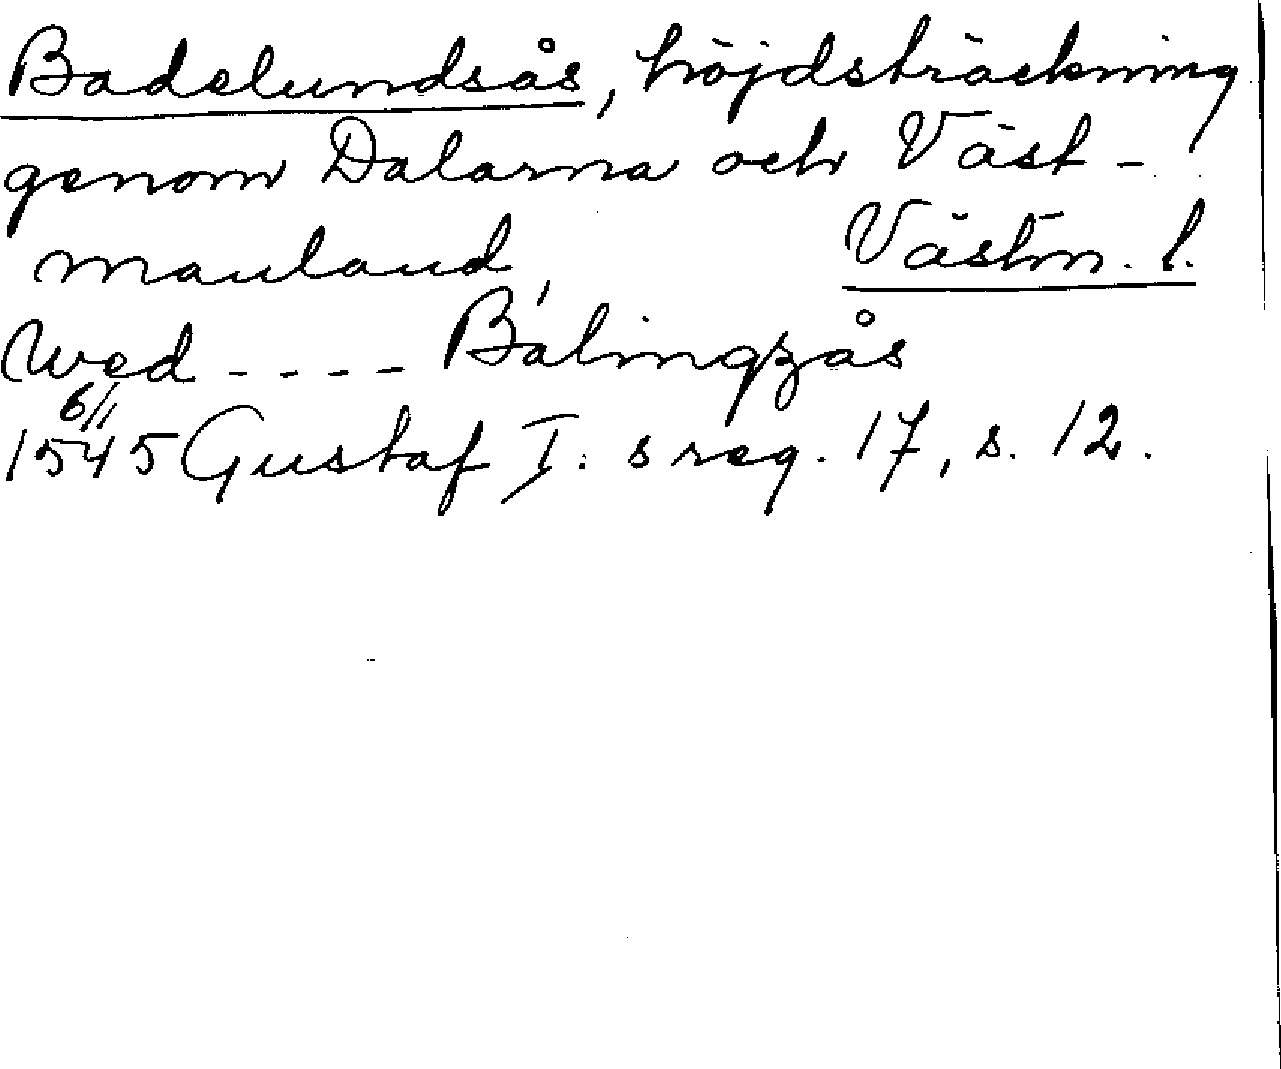 Badelundsås, höjdsträckning
genom Dalarna och Väst-
manland, Västm. l.
Wed ---- Balingzås
6/11
1545 Gustaf I: s reg. 17, s. 12.